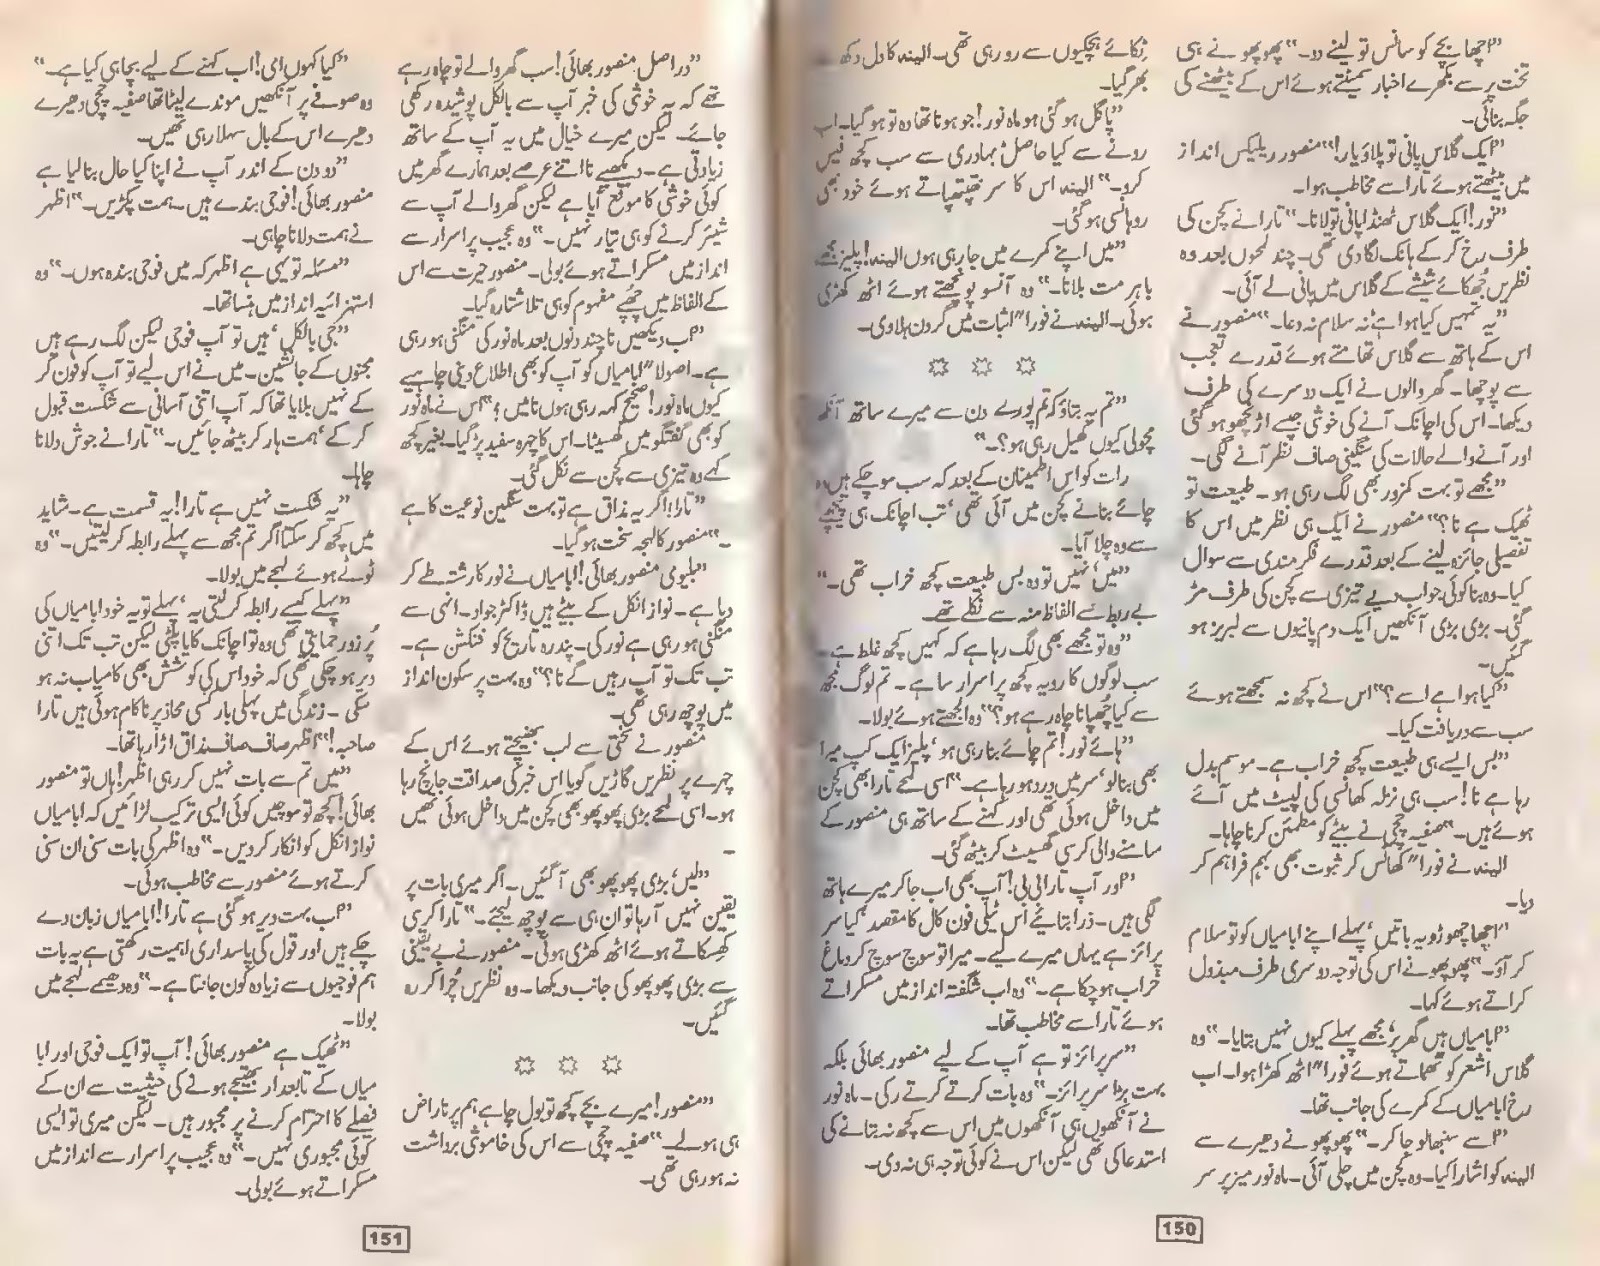 ”اچھا بچے کو سانس تو لینے دو۔“ پھوپھو نے ہی
تخت پر سے بکھرے اخبار سمیٹتے ہوئے اس کے بیٹھنے کی
جگہ بنائی۔
”ایک گلاس پانی تو پلاؤ یار!“ منصور ریلیکس انداز
میں بیٹھتے ہوئے تارا سے مخاطب ہوا۔
”نور! ایک گلاس ٹھنڈا پانی تو لانا۔“ تارا نے کچن کی
طرف رخ کر کے ہانک لگا دی تھی۔ چند لمحوں بعد وہ
نظریں جھکائے شیشے کے گلاس میں پانی لے آئی۔
”یہ تمہیں کیا ہوا ہے؟ نہ سلام نہ دعا۔“ منصور نے
اس کے ہاتھ سے گلاس تھامتے ہوئے قدرے تعجب
سے پوچھا۔ گھر والوں نے ایک دوسرے کی طرف
دیکھا۔ اس کی اچانک آنے کی خوشی جیسے اڑنچھو ہو گئی
اور آنے والے حالات کی سنگینی صاف نظر آنے لگی۔
”مجھے تو بہت کمزور بھی لگ رہی ہو۔ طبیعت تو
ٹھیک ہے نا؟“ منصور نے ایک ہی نظر میں اس کا
تفصیلی جائزہ لینے کے بعد قدرے فکر مندی سے سوال
کیا۔ وہ بنا کوئی جواب دیے تیزی سے کچن کی طرف مڑ
گئی۔ بڑی بڑی آنکھیں ایک دم پانیوں سے لبریز ہو
گئیں۔
”کیا ہوا ہے اسے؟“ اس نے کچھ نہ سمجھتے ہوئے
سب سے دریافت کیا۔
”بس ایسے ہی طبیعت کچھ خراب ہے۔ موسم بدل
رہا ہے نا! سب ہی نزلہ کھانسی کی لپیٹ میں آئے
ہوئے ہیں۔“ صفیہ چچی نے بیٹے کو مطمئن کرنا چاہا۔
الہند نے فورا" کھانس کر ثبوت بھی بہم فراہم کر
دیا۔
”اچھا چھوڑو یہ باتیں، پہلے اپنے ابا میاں کو تو سلام
کر آؤ۔“ پھوپھو نے اس کی توجہ دوسری طرف مبذول
کراتے ہوئے کہا۔
”ابا میاں ہیں گھر پر؟ مجھے پہلے کیوں نہیں بتایا۔“ وہ
گلاس اشعر کو تھماتے ہوئے فورا" اٹھ کھڑا ہوا۔ اب
رخ ابا میاں کے کمرے کی جانب تھا۔
”اسے سنبھالو جا کر۔“ پھوپھو نے دھیرے سے
الہند کو اشارا کیا۔ وہ کچن میں چلی آئی۔ ماہ نور میز پر سر
ٹکائے ہچکیوں سے رو رہی تھی۔ الہند کا دل دکھ سے
بھر گیا۔
”پاگل ہو گئی ہو ماہ نور! جو ہونا تھا وہ تو ہو گیا۔ اب
رونے سے کیا حاصل؟ بہادری سے سب کچھ فیس
کرو۔“ الہند اس کا سر تھپتھپاتے ہوئے خود بھی
روہانسی ہو گئی۔
”میں اپنے کمرے میں جا رہی ہوں الہند! پلیز مجھے
باہر مت بلانا۔“ وہ آنسو پونچھتے ہوئے اٹھ کھڑی
ہوئی۔ الہند نے فورا" اثبات میں گردن ہلا دی۔
”تم یہ بتاؤ کہ تم پورے دن سے میرے ساتھ آنکھ
مچولی کیوں کھیل رہی ہو؟“
رات کو اس اطمینان کے بعد کہ سب سو چکے ہیں وہ
چائے بنانے کچن میں آئی تھی، تب اچانک ہی پیچھے
سے وہ چلا آیا۔
”میں، نہیں تو وہ بس طبیعت کچھ خراب تھی۔“
بے ربط سے الفاظ منہ سے نکلے تھے۔
”وہ تو مجھے بھی لگ رہا ہے کہ کہیں کچھ غلط ہے۔
سب لوگوں کا رویہ کچھ پر اسرار سا ہے۔ تم لوگ مجھ
سے کیا چھپانا چاہ رہے ہو؟“ وہ الجھتے ہوئے بولا۔
”ہائے نور! تم چائے بنا رہی ہو، پلیز ایک کپ میرا
بھی بنا لو، سر میں درد ہو رہا ہے۔“ اسی لمحے تارا بھی کچن
میں داخل ہوئی تھی اور کہنے کے ساتھ ہی منصور کے
سامنے والی کرسی گھسیٹ کر بیٹھ گئی۔
”اور آپ تارا بی بی! آپ بھی اب جا کر میرے ہاتھ
لگی ہیں۔ ذرا بتائیے اس ٹیلی فون کال کا مقصد، کیا سر
پرائز ہے یہاں میرے لیے۔ میرا تو سوچ سوچ کر دماغ
خراب ہو چکا ہے۔“ وہ اب شگفتہ انداز میں مسکراتے
ہوئے تارا سے مخاطب تھا۔
”سرپرائز تو ہے آپ کے لیے منصور بھائی بلکہ
بہت بڑا سرپرائز۔“ وہ بات کرتے کرتے رکی۔ ماہ نور
نے آنکھوں ہی آنکھوں میں اس سے کچھ نہ بتانے کی
استدعا کی تھی لیکن اس نے کوئی توجہ ہی نہ دی۔
150
”دراصل منصور بھائی! سب گھر والے تو چاہ رہے
تھے کہ یہ خوشی کی خبر آپ سے بالکل پوشیدہ رکھی
جائے۔ لیکن میرے خیال میں یہ آپ کے ساتھ
زیادتی ہے۔ دیکھیے نا اتنے عرصے بعد ہمارے گھر میں
کوئی خوشی کا موقع آیا ہے لیکن گھر والے آپ سے
شیئر کرنے کو ہی تیار نہیں۔“ وہ عجیب پر اسرار سے
انداز میں مسکراتے ہوئے بولی۔ منصور حیرت سے اس
کے الفاظ میں چھپے مفہوم کو ہی تلاشتا رہ گیا۔
”اب دیکھیں نا چند دنوں بعد ماہ نور کی منگنی ہو رہی
ہے۔ اصولا" ابا میاں کو آپ کو بھی اطلاع دینی چاہیے
کیوں ماہ نور! صحیح کہہ رہی ہوں نا میں؟“ اس نے ماہ نور
کو بھی گفتگو میں گھسیٹا۔ اس کا چہرہ سفید پڑ گیا۔ بغیر کچھ
کہے وہ تیزی سے کچن سے نکل گئی۔
”تارا! اگر یہ مذاق ہے تو بہت سنگین نوعیت کا ہے
۔“ منصور کا لہجہ سخت ہو گیا۔
”بلیو می منصور بھائی! ابا میاں نے نور کا رشتہ طے کر
دیا ہے۔ نواز انکل کے بیٹے ہیں ڈاکٹر جواد۔ انہی سے
منگنی ہو رہی ہے نور کی۔ پندرہ تاریخ کو فنکشن ہے۔
تب تک تو آپ رہیں گے نا؟“ وہ بہت پر سکون انداز
میں پوچھ رہی تھی۔
منصور نے سختی سے لب بھینچتے ہوئے اس کے
چہرے پر نظریں گاڑیں گویا اس خبر کی صداقت جانچ رہا
ہو۔ اسی لمحے بڑی پھوپھو بھی کچن میں داخل ہوئی تھیں
۔
”لیں، بڑی پھوپھو بھی آ گئیں۔ اگر میری بات پر
یقین نہیں آ رہا تو ان ہی سے پوچھ لیجئے۔“ تارا کرسی
کھسکاتے ہوئے اٹھ کھڑی ہوئی۔ منصور نے بے یقینی
سے بڑی پھوپھو کی جانب دیکھا۔ وہ نظریں چرا کر رہ
گئیں۔
”منصور! میرے بچے کچھ تو بول چاہے ہم پر ناراض
ہی ہو لے۔“ صفیہ چچی سے اس کی خاموشی برداشت
نہ ہو رہی تھی۔
”کیا کہوں امی! اب کہنے کے لیے بچا ہی کیا ہے۔“
وہ صوفے پر آنکھیں موندے لیٹا تھا صفیہ چچی دھیرے
دھیرے اس کے بال سہلا رہی تھیں۔
”دو دن کے اندر آپ نے اپنا کیا حال بنا لیا ہے
منصور بھائی! فوجی بندے ہیں۔ ہمت پکڑیں۔“ اظہر
نے ہمت دلانا چاہی۔
”مسئلہ تو یہی ہے اظہر کہ میں فوجی بندہ ہوں۔“ وہ
استہزائیہ انداز میں ہنسا تھا۔
”جی بالکل، ہیں تو آپ فوجی لیکن لگ رہے ہیں
مجنوں کے جانشین۔ میں نے اس لیے تو آپ کو فون کر
کے نہیں بلایا تھا کہ آپ اتنی آسانی سے شکست قبول
کر کے، ہمت ہار کر بیٹھ جائیں۔“ تارا نے جوش دلانا
چاہا۔
”یہ شکست نہیں ہے تارا! یہ قسمت ہے۔ شاید
میں کچھ کر سکتا اگر تم مجھ سے پہلے رابطہ کر لیتیں۔“ وہ
ٹوٹے ہوئے لہجے میں بولا۔
”پہلے کیسے رابطہ کر لیتی یہ، پہلے تو یہ خود ابا میاں کی
پُر زور حمایتی تھی وہ تو اچانک کایا پلٹی لیکن تب تک اتنی
دیر ہو چکی تھی کہ خود اس کی کوشش بھی کامیاب نہ ہو
سکی۔ زندگی میں پہلی بار کسی محاذ پر ناکام ہوئی ہیں تارا
صاحبہ!“ اظہر صاف صاف مذاق اڑا رہا تھا۔
”میں تم سے بات نہیں کر رہی اظہر! ہاں تو منصور
بھائی! کچھ تو سوچیں کوئی ایسی ترکیب لڑائیں کہ ابا میاں
نواز انکل کو انکار کر دیں۔“ وہ اظہر کی بات سنی ان سنی
کرتے ہوئے منصور سے مخاطب ہوئی۔
”اب بہت دیر ہو گئی ہے تارا! ابا میاں زبان دے
چکے ہیں اور قول کی پاسداری اہمیت رکھتی ہے یہ بات
ہم فوجیوں سے زیادہ کون جانتا ہے۔“ وہ دھیمے لہجے میں
بولا۔
”ٹھیک ہے منصور بھائی! آپ تو ایک فوجی اور ابا
میاں کے تابعدار بھتیجے ہونے کی حیثیت سے ان کے
فیصلے کا احترام کرنے پر مجبور ہیں۔ لیکن میری تو ایسی
کوئی مجبوری نہیں۔“ وہ عجیب پر اسرار سے انداز میں
مسکراتے ہوئے بولی۔
151